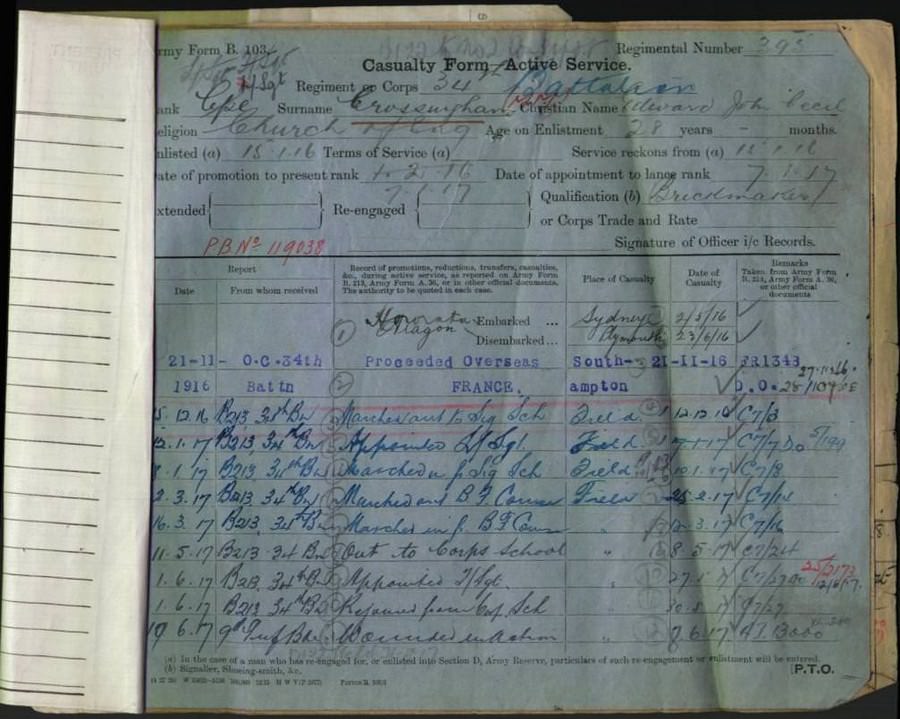 rmy Form B. 103.
Regimental Number 395
Casualty Form—Active Service.
Sgt
Regiment or Corps 34th Battalion
ank Cpl Surname Crossingham Christian Name Edward John Cecil
eligion Church of Eng Age on Enlistment 28 years - months.
nlisted (a) 15.1.16 Terms of Service (a) Service reckons from (a) 15.1.16
ate of promotion to present rank Date of appointment to lance rank 7.1.17
xtended Re-engaged Qualification (b) Brickmaker
or Corps Trade and Rate
P.B.No 119038
Signature of Officer i/c Records.
Report
Date From whom received
Record of promotions, reductions, transfers, casualties, &c., during active service, as reported on Army Form B. 213, Army Form A. 36, or in other official documents. The authority to be quoted in each case.
Place of Casualty
Date of Casualty
Remarks Taken from Army Form B. 213, Army Form A. 36, or other official documents
(1) Embarked ... Sydney 2/5/16
Disembarked ... Plymouth 23/6/16
21-11- O.C. 34th Proceeded Overseas South- 21-11-16 BR1343
1916 Battn (2) FRANCE. ampton D.O.
5.12.16 B213 34th Bn Marched out to Sig Sch Field 1.12.16 C7/3
12.1.17 B213 34th Bn Appointed L/Sgt. Field 7.1.17 C7/7
8.1.17 B213 34th Bn Marched in f. Sig Sch Field C7/8
2.3.17 B213 34th Bn Marched out B.F. Course Field 25.2.17 C7/14
16.3.17 B213 34th Bn Marched in f. B.F. Course " 3.17 C7/16
11.5.17 B213 34 Bn Out to Corps School " 8.5.17 C7/24
1.6.17 B213 34th Bn Appointed T/Sgt. " 27.5.17 C7/27
1.6.17 B213 34th Bn Rejoined from Corp. Sch " C7/27
6.17 9th Inf Bde. Wounded in Action " 7.6.17 13000
(a) In the case of a man who has re-engaged for, or enlisted into Section D, Army Reserve, particulars of such re-engagement or enlistment will be entered.
(b) Signaller, Shoeing-smith, &c.
[P.T.O.